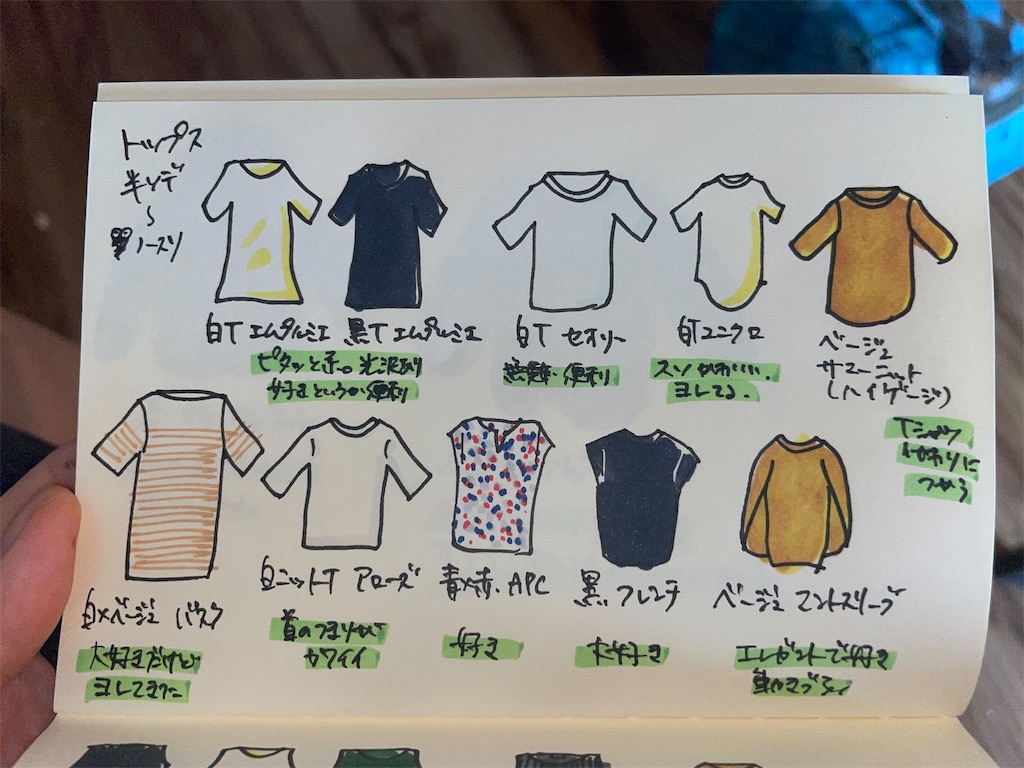 トップス
半ソデ
〜
ノースリ
白T エムプルミエ
黒T エムプルミエ
ピタッと系。光沢あり
好きというか便利
白T セオリー
無難・便利
白Tユニクロ
スソかわいい。
ヨレてる。
ベージュ
サマーニット
(ハイゲージ)
Tシャツ
代わりに
つかう
白×ベージュ バスク
大好きだけど
ヨレてきた
白ニットT アローズ
首のつまりが
カワイイ
青×赤、APC
好き
黒、フレンチ
大好き
ベージュ マントスリーブ
エレガントで好き